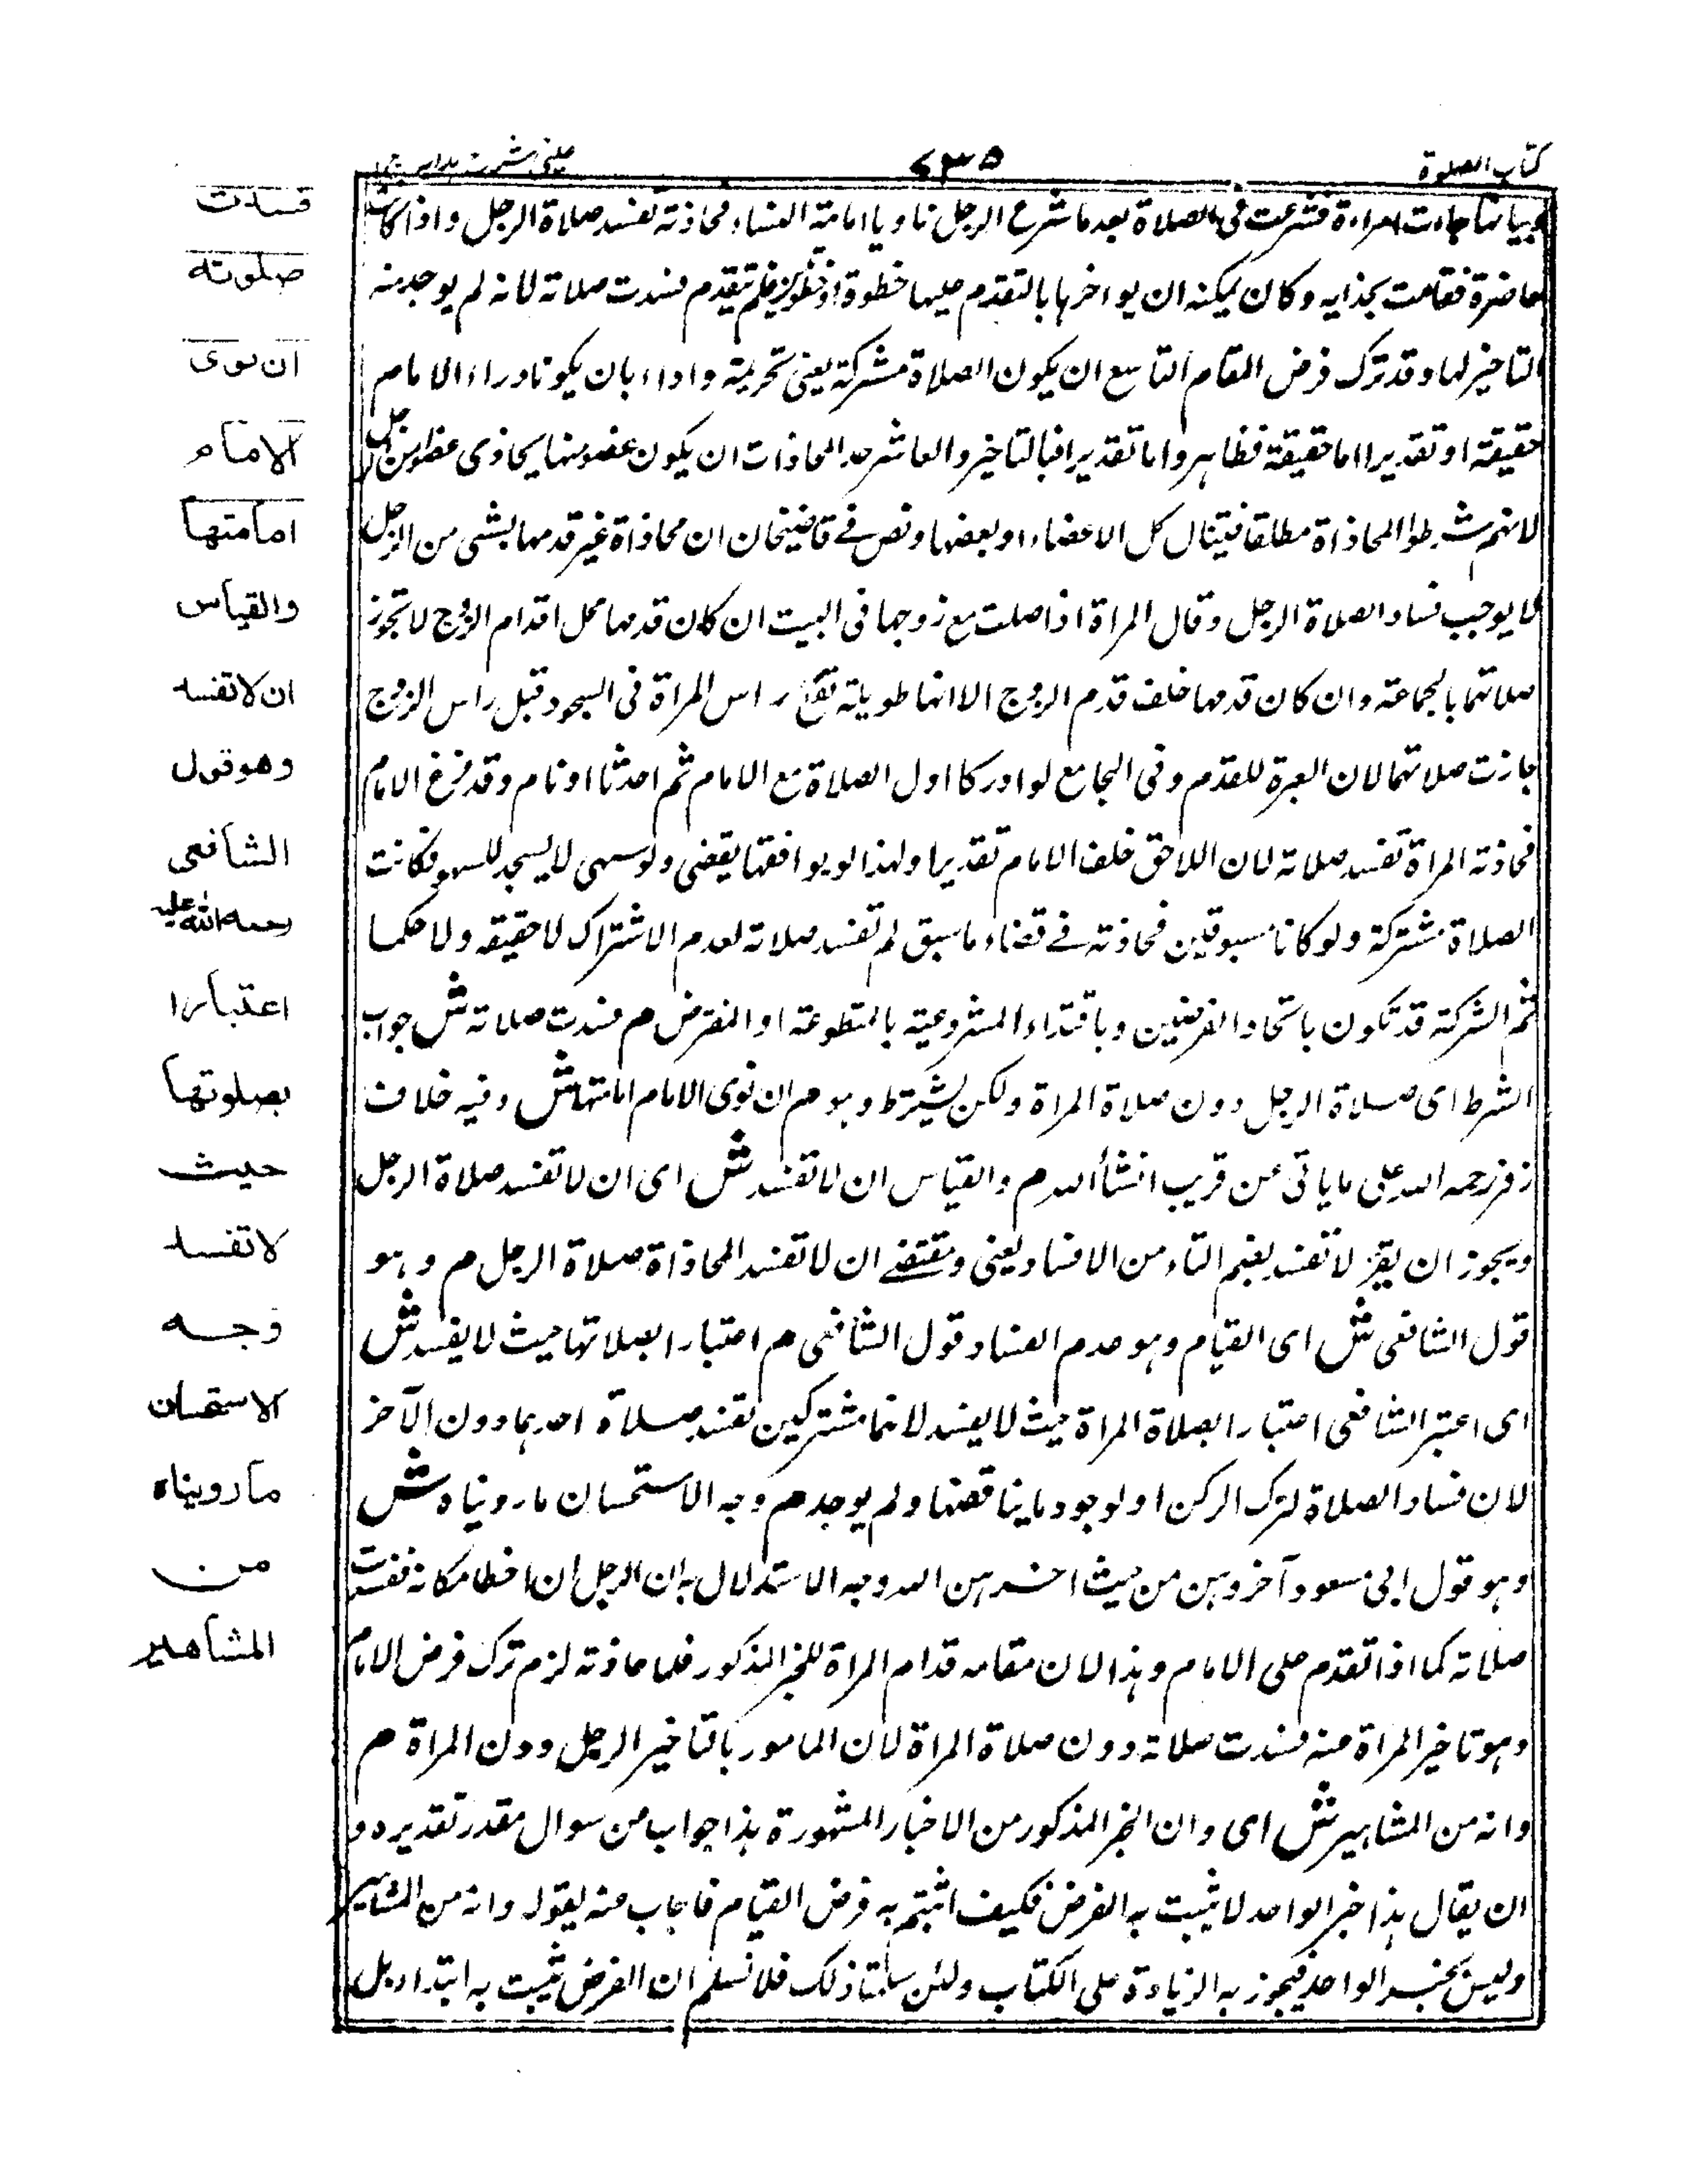 كتاب الصلوة
٧٣٥
عيني شرح هدايه ج ١
وبيانها جاءت امراءة فشرعت في الصلاة بعد ما شرع الرجل ناويا امامة النساء فحاذته تفسد صلاة الرجل واذا كانت
حاضرة فقامت بحذايه وكان يمكنه ان يواخرها بالتقدم عليها خطوة او خطوتين فلم يتقدم فسدت صلاته لانه لم يوجد منه
التاخير لها وقد ترك فرض المقام التاسع ان يكون الصلاة مشتركة يعني تحريمة واداء بان يكونا وراء الامام
حقيقة او تقديرا اما حقيقة فظاهر واما تقديرا فبالتاخير والعاشر حد المحاذات ان يكون عضو منها يحاذى عضوا من الرجل
لانهم شرطوا المحاذاة مطلقا فيتنال كل الاعضاء او بعضها ونص في قاضيخان ان محاذاة غير قدمها بشى من الرجل
لا يوجب فساد الصلاة الرجل وقال المراة اذا صلت مع زوجها فى البيت ان كان قدمها محل اقدام الزوج لا تجوز
صلاتهما بالجماعة وان كان قدمها خلف قدم الزوج الا انها طويلة تقع راس المراة فى السجود قبل راس الزوج
جازت صلاتهما لان العبرة للقدم وفى الجامع لو ادركا اول الصلاة مع الامام ثم احدثا او نام وقد فرغ الامام
فحاذته المراة تفسد صلاته لان اللاحق خلف الامام تقديرا ولهذا لو يوافقها يقضى ولو سهى لا يسجد للسهو فكانت
الصلاة مشتركة ولو كانا مسبوقين فحاذته في قضاء ما سبق لم تفسد صلاته لعدم الاشتراك لا حقيقه ولا حكما
ثم الشركة قد تكون باتحاد الفرضين وباقتداء المشروعية بالمتطوعة او المفترض م فسدت صلاته ش جواب
الشرط اى صلاة الرجل دون صلاة المراة ولكن يشترط وهو م ان نوى الامام امامتها ش وفيه خلاف
زفر رحمه الله على ما ياتى عن قريب انشأ الله م والقياس ان لا تفسد ش اى ان لا تفسد صلاة الرجل
ويجوز ان يقر لا تفسد بضم التاء من الافساد يعنى ومقتضے ان لا تفسد المحاذاة صلاة الرجل م وهو
قول الشافعى ش اى القيام وهو عدم الفساد قول الشافعى م اعتبارا بصلاتها حيث لا يفسد ش
اى اعتبر الشافعى اعتبارا بصلاة المراة حيث لا يفسد لانهما مشتركين تفسد صلاة احدهما دون الآخر
لان فساد الصلاة لترك الركن او لوجود ما يناقضها ولم يوجد م وجه الاستحسان ما رويناه ش
وهو قول ابى مسعود آخروهن من حيث اخرهن الله وجه الاستدلال به ان الرجل ان اخطا مكانه فسدت
صلاته كما اذا تقدم على الامام وهذا لان مقامه قدام المراة للخبر المذكور فلما حاذته لزم ترك فرض الامام
وهو تاخير المراة منه فسدت صلاته دون صلاة المراة لان المامور بالتاخير الرجل دون المراة م
وانه من المشاهير ش اى وان الخبر المذكور من الاخبار المشهورة هذا جواب من سوال مقدر تقديره و
ان يقال هذا خبر الواحد لا يثبت به الفرض فكيف اثبتم به فرض القيام فاجاب عنه بقوله وانه من المشاهير
وليس بخبر الواحد فيجوز به الزيادة على الكتاب ولئن سلمنا ذلك فلا نسلم ان الفرض يثبت به ابتداء بل
فسدت
صلوته
ان نوى
الامام
امامتها
والقياس
ان لا تفسد
وهو قول
الشافعى
رحمه الله عليه
اعتبارا
بصلوتها
حيث
لا تفسد
وجه
الاستحسان
ما رويناه
من
المشاهير